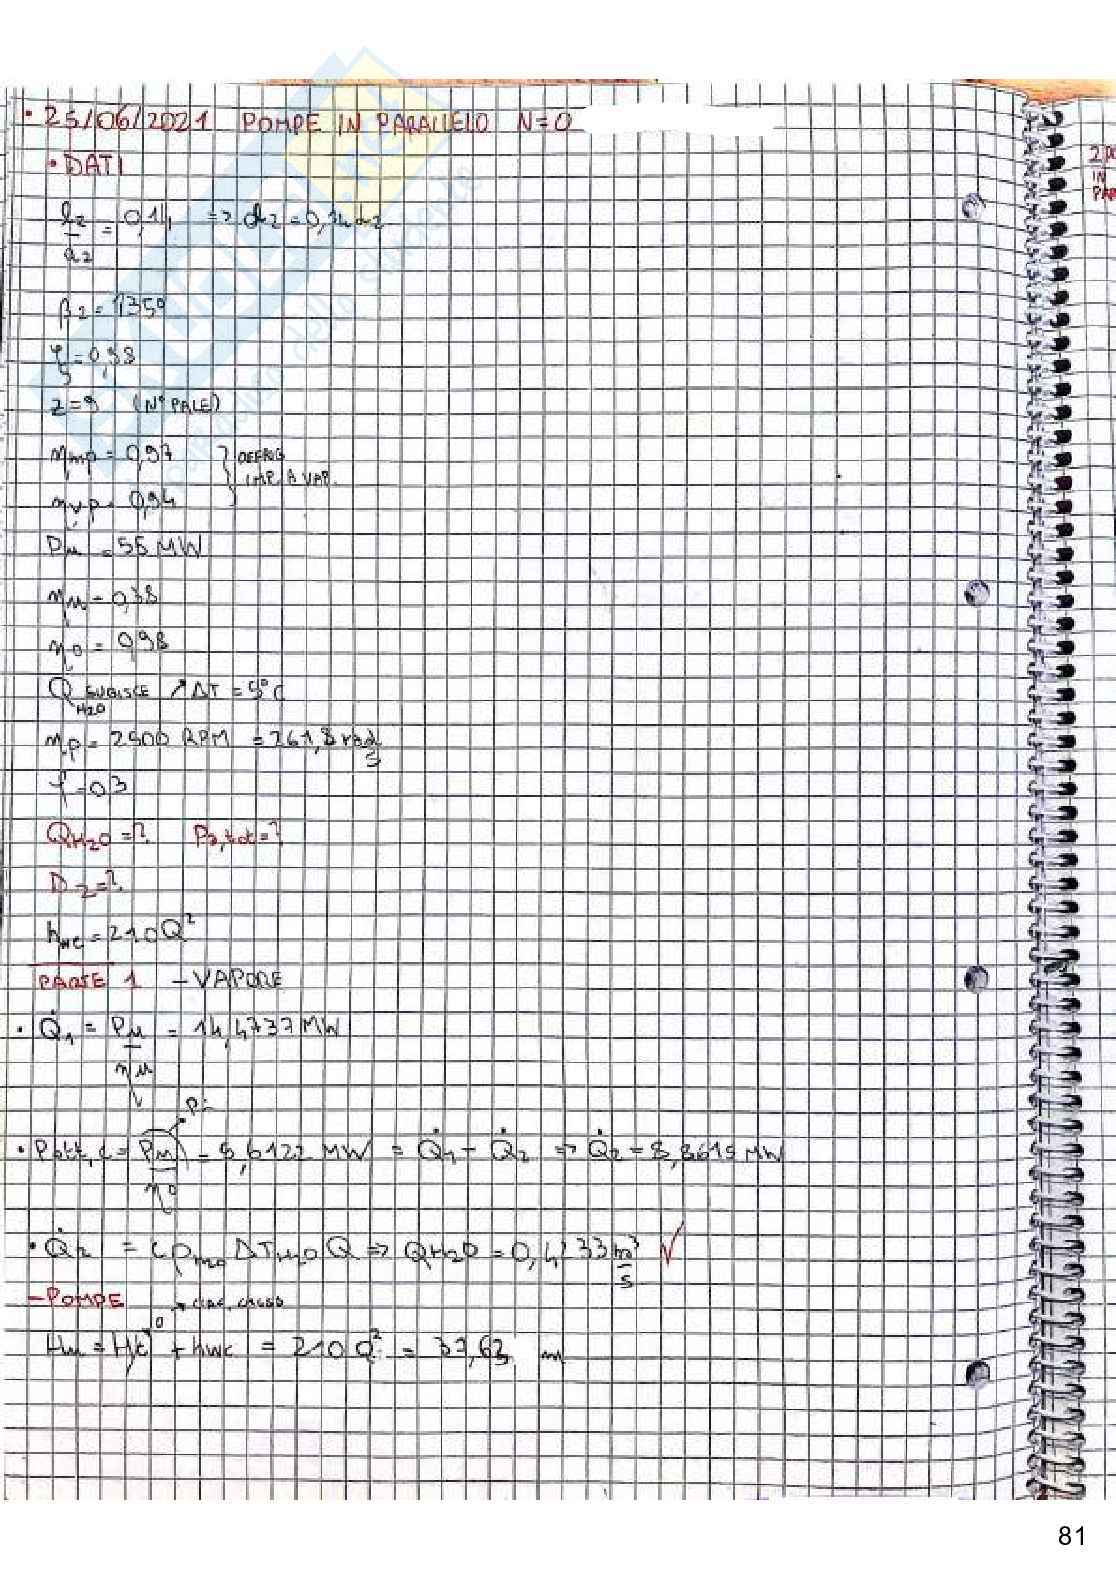 • 25/06/2021 POMPE IN PARALLELO N=0
• DATI
l2/d2 = 0,14 => l2 = 0,14 d2
β2 = 135°
ξ = 0,88
z = 9 (N° PALE)
ηmp = 0,97
IMP. A VAP.
ηvp = 0,94
Pu = 55 MW
ηu = 0,38
ηo = 0,98
Q H2O SUBISCE ↗ ΔT = 5°C
np = 2500 RPM = 261,8 rad/s
φ = 0,3
QH2O = ? Pa,tot = ?
D2 = ?
hwc = 210Q²
PARTE 1 - VAPORE
• Q̇1 = Pu/ηu = 14,4737 MW
Pi
• Pott,c = Pu/ηo = 5,6122 MW = Q̇1 - Q̇2 => Q̇2 = 8,8615 MW
• Q̇2 = cρH2O ΔTH2O Q => QH2O = 0,4233 m³/s ✓
- POMPE
Hu = Ht 0 + hwc = 210 Q² = 37,63 m
2 PO
IN
PAR
81